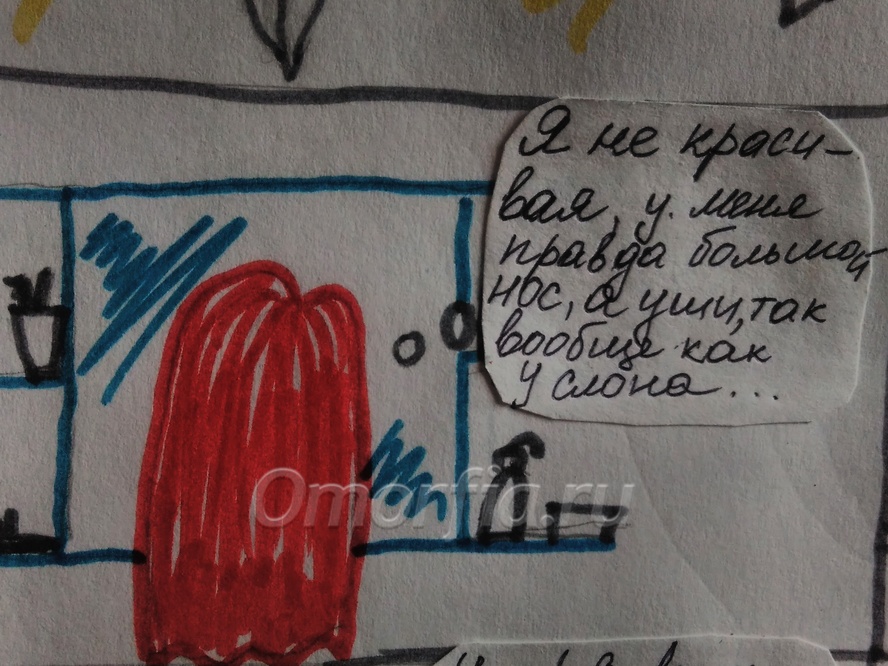 Я не краси-
вая, у меня
правда большой
нос, а уши, так
вообще как
у слона...
Omorfia.ru